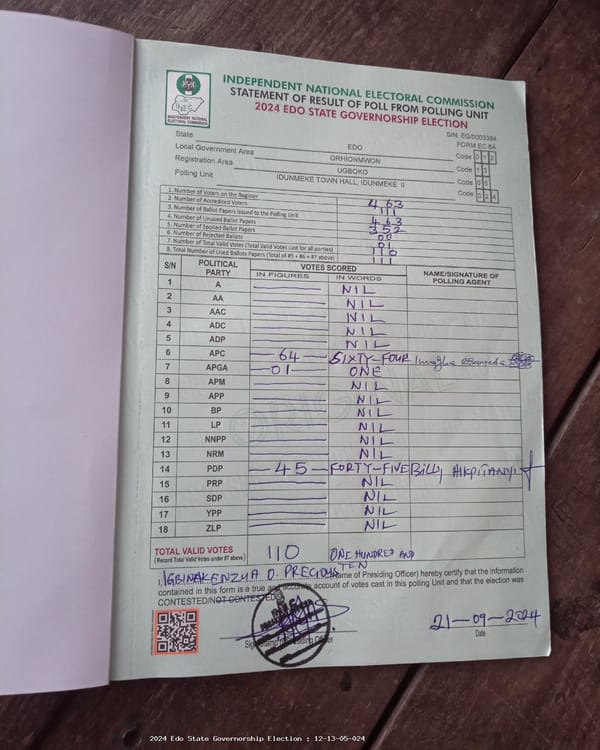 INDEPENDENT NATIONAL ELECTORAL COMMISSION
STATEMENT OF RESULT OF POLL FROM POLLING UNIT
2024 EDO STATE GOVERNORSHIP ELECTION
INEC
INDEPENDENT NATIONAL ELECTORAL COMMISSION
S/N: EG/0003384
FORM EC 8A
State EDO Code 0 1 2
Local Government Area ORHIONMWON Code 1 3
Registration Area UGBOKO Code 0 5
Polling Unit IDUNMEKE TOWN HALL, IDUNMEKE II Code 0 2 4
1. Number of Voters on the Register 463
2. Number of Accredited Voters 111
3. Number of Ballot Papers Issued to the Polling Unit 463
4. Number of Unused Ballot Papers 352
5. Number of Spoiled Ballot Papers 00
6. Number of Rejected Ballots 01
7. Number of Total Valid Votes (Total Valid Votes cast for all parties) 110
8. Total Number of Used Ballots Papers (Total of #5 + #6 + #7 above) 111
S/N POLITICAL PARTY VOTES SCORED NAME/SIGNATURE OF POLLING AGENT
IN FIGURES IN WORDS
1 A NIL
2 AA NIL
3 AAC NIL
4 ADC NIL
5 ADP NIL
6 APC 64 SIXTY-FOUR
7 APGA 01 ONE
8 APM NIL
9 APP NIL
10 BP NIL
11 LP NIL
12 NNPP NIL
13 NRM NIL
14 PDP 45 FORTY-FIVE Billy
15 PRP NIL
16 SDP NIL
17 YPP NIL
18 ZLP NIL
TOTAL VALID VOTES 110 ONE HUNDRED AND TEN
(Record Total Valid Votes under #7 above)
I, IGBINAKENZUA O. PRECIOUS (Name of Presiding Officer) hereby certify that the information
contained in this form is a true and accurate account of votes cast in this polling Unit and that the election was
CONTESTED/NOT CONTESTED
21-09-2024
Date
2024 Edo State Governorship Election : 12-13-05-024